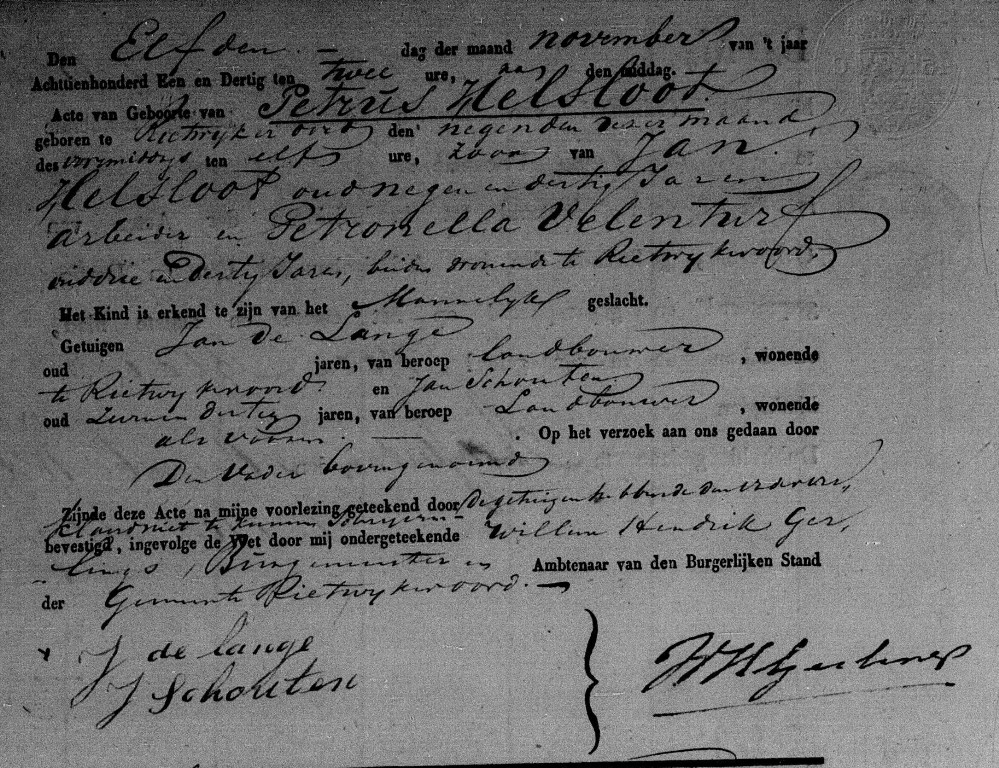 Den Elfden dag der maand november van 't jaar
Achttienhonderd Een en Dertig ten twee ure, na den middag.
Acte van Geboorte van Petrus Helsloot.
geboren te Rietwijkeroord den negenden dezer maand,
des voormiddags ten elf ure, zoon van Jan
Helsloot oud negen en dertig Jaren
arbeider en Petronella Velenturf
oud drie en Dertig Jaren, beiden wonende te Rietwykeroord,
Het Kind is erkend te zijn van het Mannelyk geslacht.
Getuigen Jan de Lange
oud jaren, van beroep landbouwer, wonende
te Rietwykeroord en Jan Schouten
oud dertig jaren, van beroep Landbouwer, wonende
als voren. Op het verzoek aan ons gedaan door
Den Vader bovengenoemd
Zijnde deze Acte na mijne voorlezing geteekend door de getuigen hebbende den vader ver,
klaard niet te kunnen schryven
bevestigd, ingevolge de Wet door mij ondergeteekende Willem Hendrik Ger,
lings, Burgemeester en Ambtenaar van den Burgerlijken Stand
der Gemeente Rietwykeroord.
J de lange
J Schouten